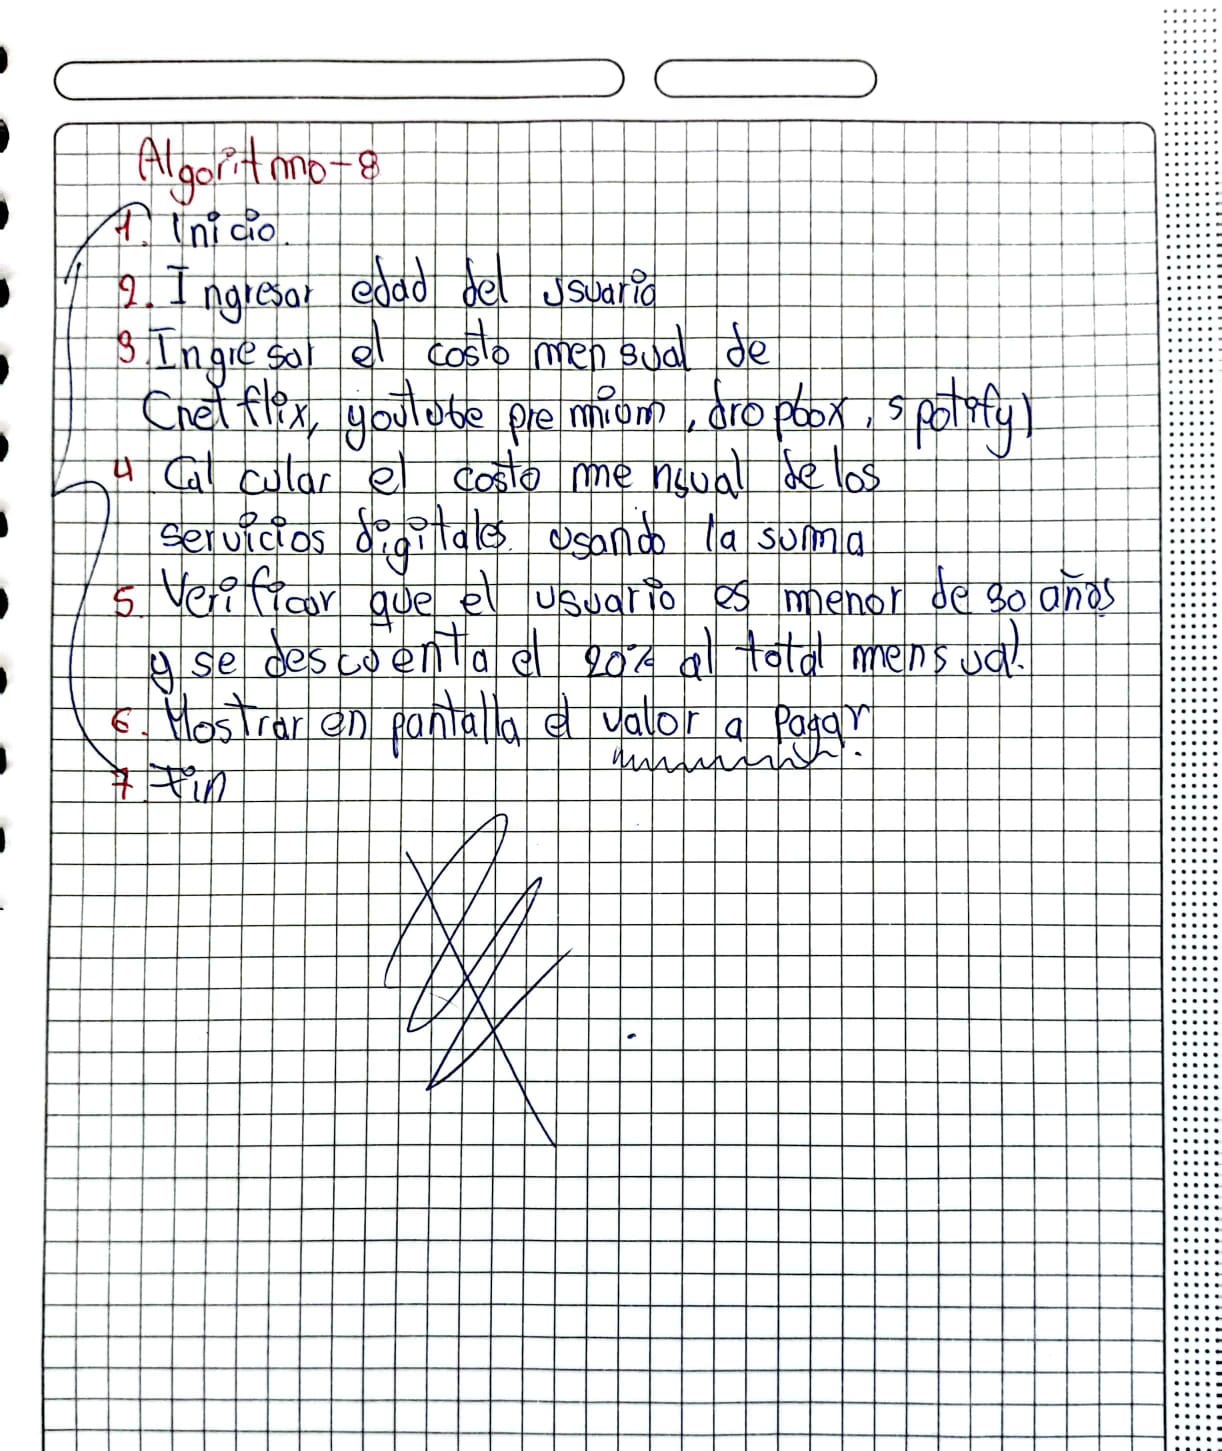 Algoritmo-8
1. Inicio.
2. Ingresar edad del usuario
3. Ingresar el costo mensual de
(netflix, youtube premium, dropbox, spotify)
4 Calcular el costo mensual de los
servicios digitales usando la suma
5. Verificar que el usuario es menor de 30 años
y se descuenta el 20% al total mensual.
6. Mostrar en pantalla el valor a pagar.
7. Fin